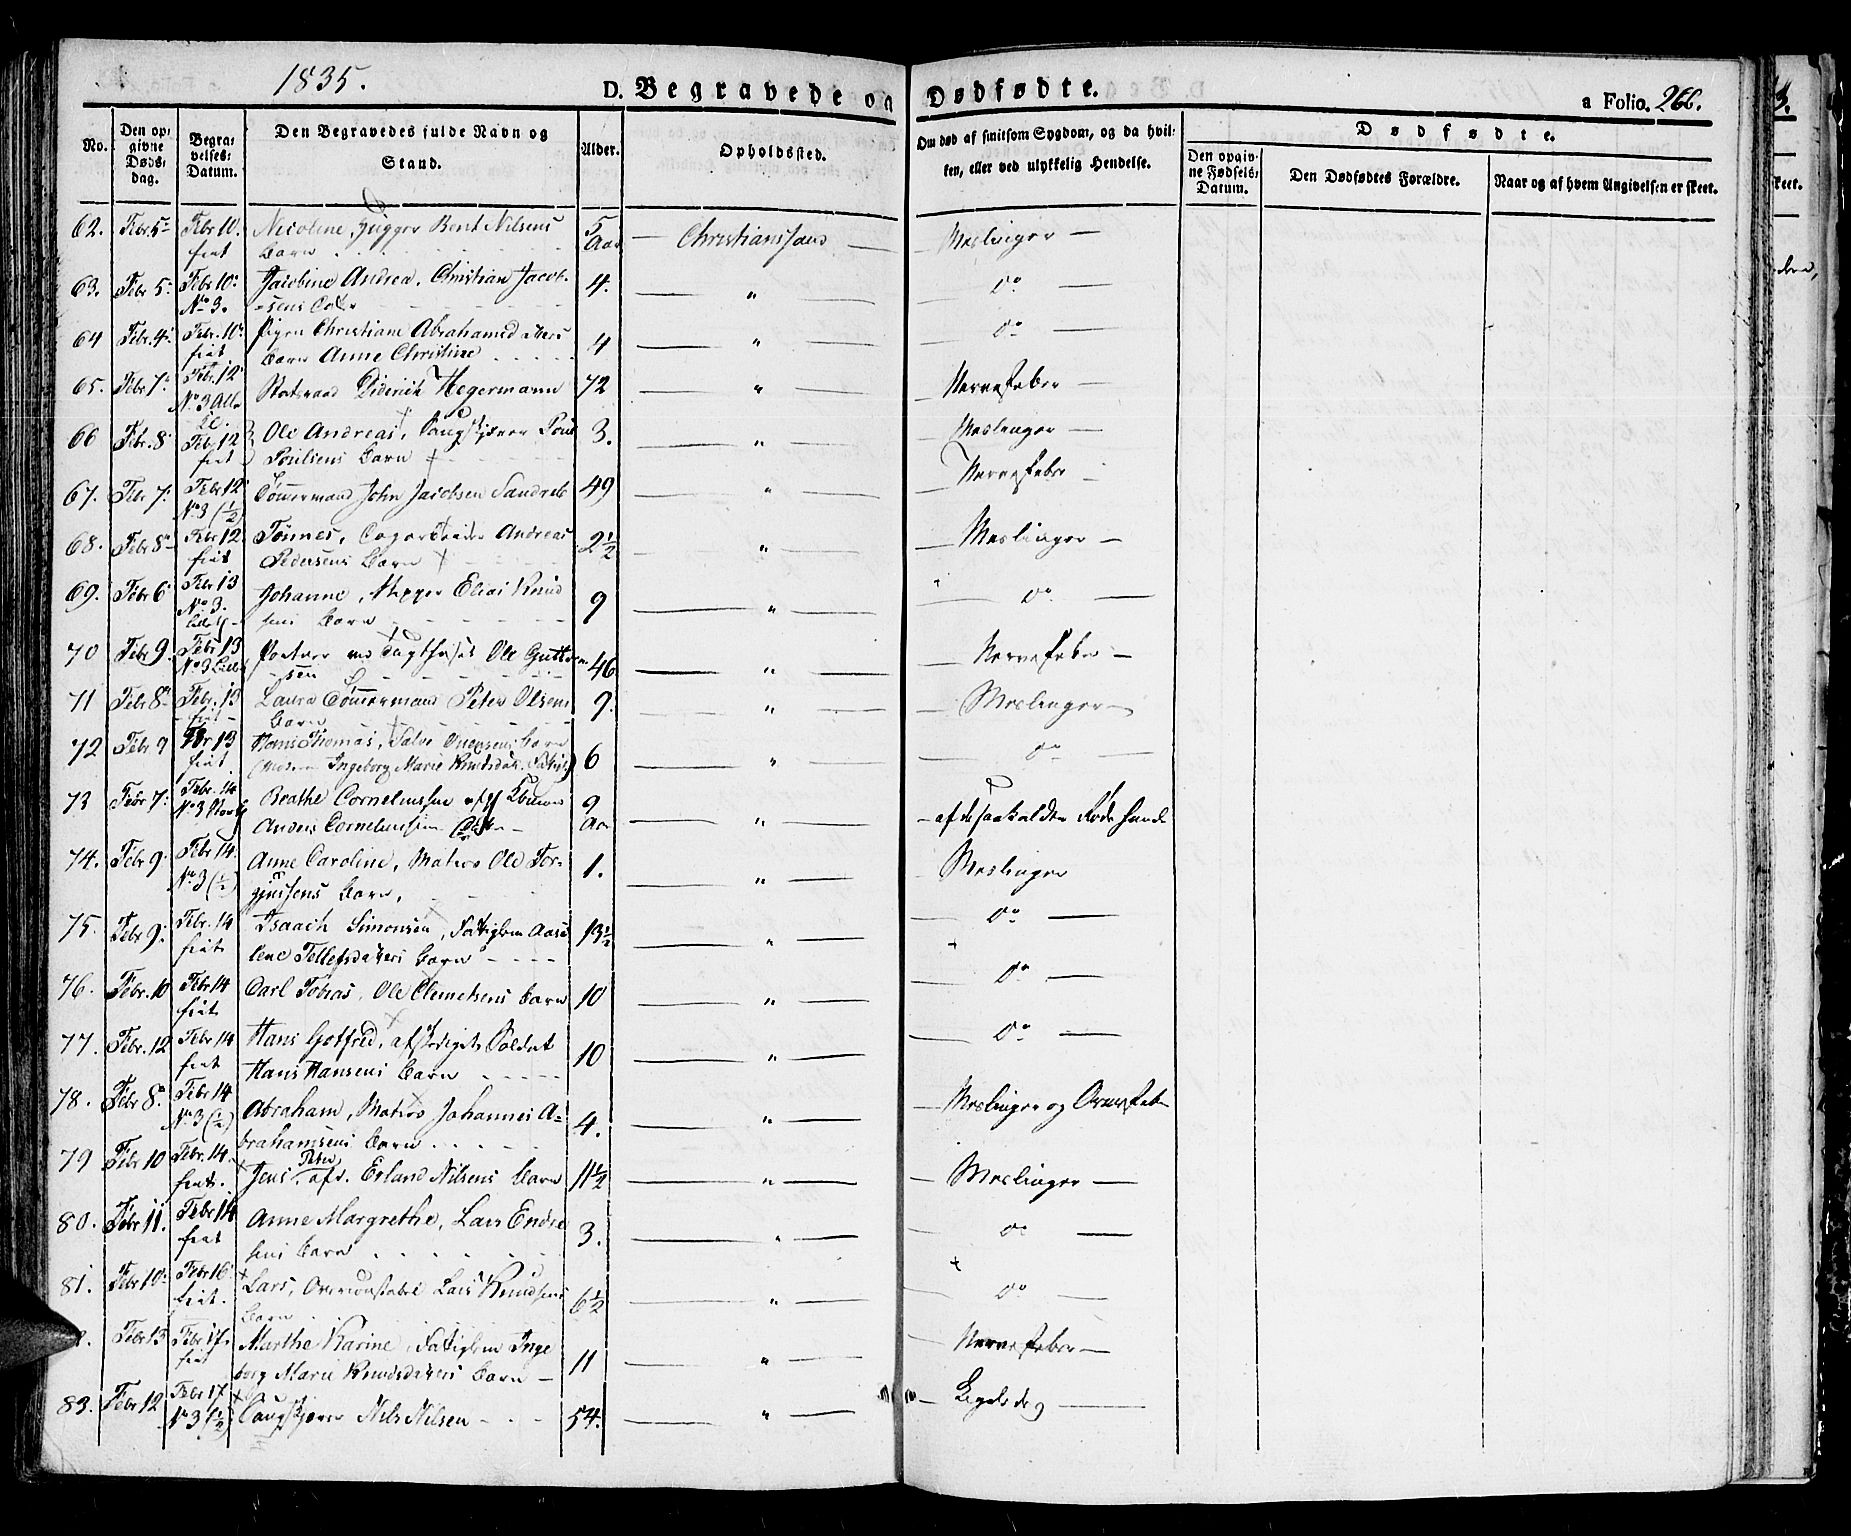 1835.
D. Begravede og Dødfødte.
a Folio. 266.
No.
Den opgivne Døds-dag.
Begravelses-Datum.
Den Begravedes fulde Navn og Stand.
Alder.
Opholdssted.
Om død af smitsom Sygdom, og da hvilken, eller ved ulykkelig Hendelse.
Dødfødte.
Den opgivne Fødsels-Datum.
Den Dødfødtes Forældre.
Naar og af hvem Angivelsen er skeet.
62. Febr 5 Febr 10. Nicoline, Bent Nilsens 5 Christianssand Meslinger
fiat Barn Aar
63. Febr 5 Febr 10 Jacobine Andrea, Christian Jacob- 4. " do
No 3. sens Datr
64 Febr. 4 Febr. 10 Pigen Christiane Abrahamsd 4 " do
fiat Barn Anne Christine
65. Febr 7 Febr. 12 Statsraad Diderich Hegermann 72 " Nervefeber
No 3
66 Febr. 8 Febr 12 Ole Andreas, Poul 3. " Meslinger
fiat Poulsens Barn
67. Febr 7. Febr 12 Tømmermand John Jacobsen 49 " Nervefeber
No 3 (½)
68. Febr 8 Febr 12 Tønnes, Andreas 2½ " Meslinger
fiat Pedersens Barn
69. Febr 6 Febr 13 Johanne, Skipper Elias Knud 9 " do
No 3. sens Barn
70 Febr 9. Febr 13 Portner ved Tugthuset Ole Guttorm 46 " Nervefeber
No 3 sen
71 Febr 8 Febr. 13 Laura Tømmermand Peter Olsens 9. " Meslinger
fiat Barn
72 Febr 9 Febr 13 Hans Thomas, Salve Barn 6 " do
fiat (Moder Ingeborg Marie Knudsdatr.
73 Febr 7. Febr. 14 Cornelius 9 " af de saakaldte Røde Hunde
No 3 Anders Corneliussens Aar
74. Febr 9. Febr 14. Anne Caroline, Matros Ole Tor- 1. " Meslinger
No 3 (½) gjussens Barn,
75. Febr 9. Febr. 14 Isaach Simonsen, Fattiglem 13½ " do
fiat Tellefsdatters Barn
76. Febr. 10 Febr 14 Carl Tobias, Ole Clemetsens Barn 10 " do
fiat
77. Febr. 12 Febr 14 Hans Gotfred, afskediget Soldat 10 " do
fiat Hans Hansens Barn
78. Febr 8. Febr 14 Abraham, Matros Johannes A- 4. " Meslinger og
No 3 (½) brahamsens Barn
79 Febr 10 Febr. 14. Jens Peder afd. Erland Nilsens Barn 11½ " Meslinger
fiat.
80. Febr 11. Febr 14 Anne Margrethe, Lars Endre 3. " do
fiat sens Barn
81. Febr 10. Febr 16 Lars, Overconstabel Lars Knudsens 6½ " do
fiat. Barn
Febr 13 Febr 17. Marthe Karine, Fattiglem Inge 11 " Nervefeber
fiat borg Marie Knudsdatters Barn
83. Febr 12 Febr 17 Nils Nilsen 54. "
No 3 (½)